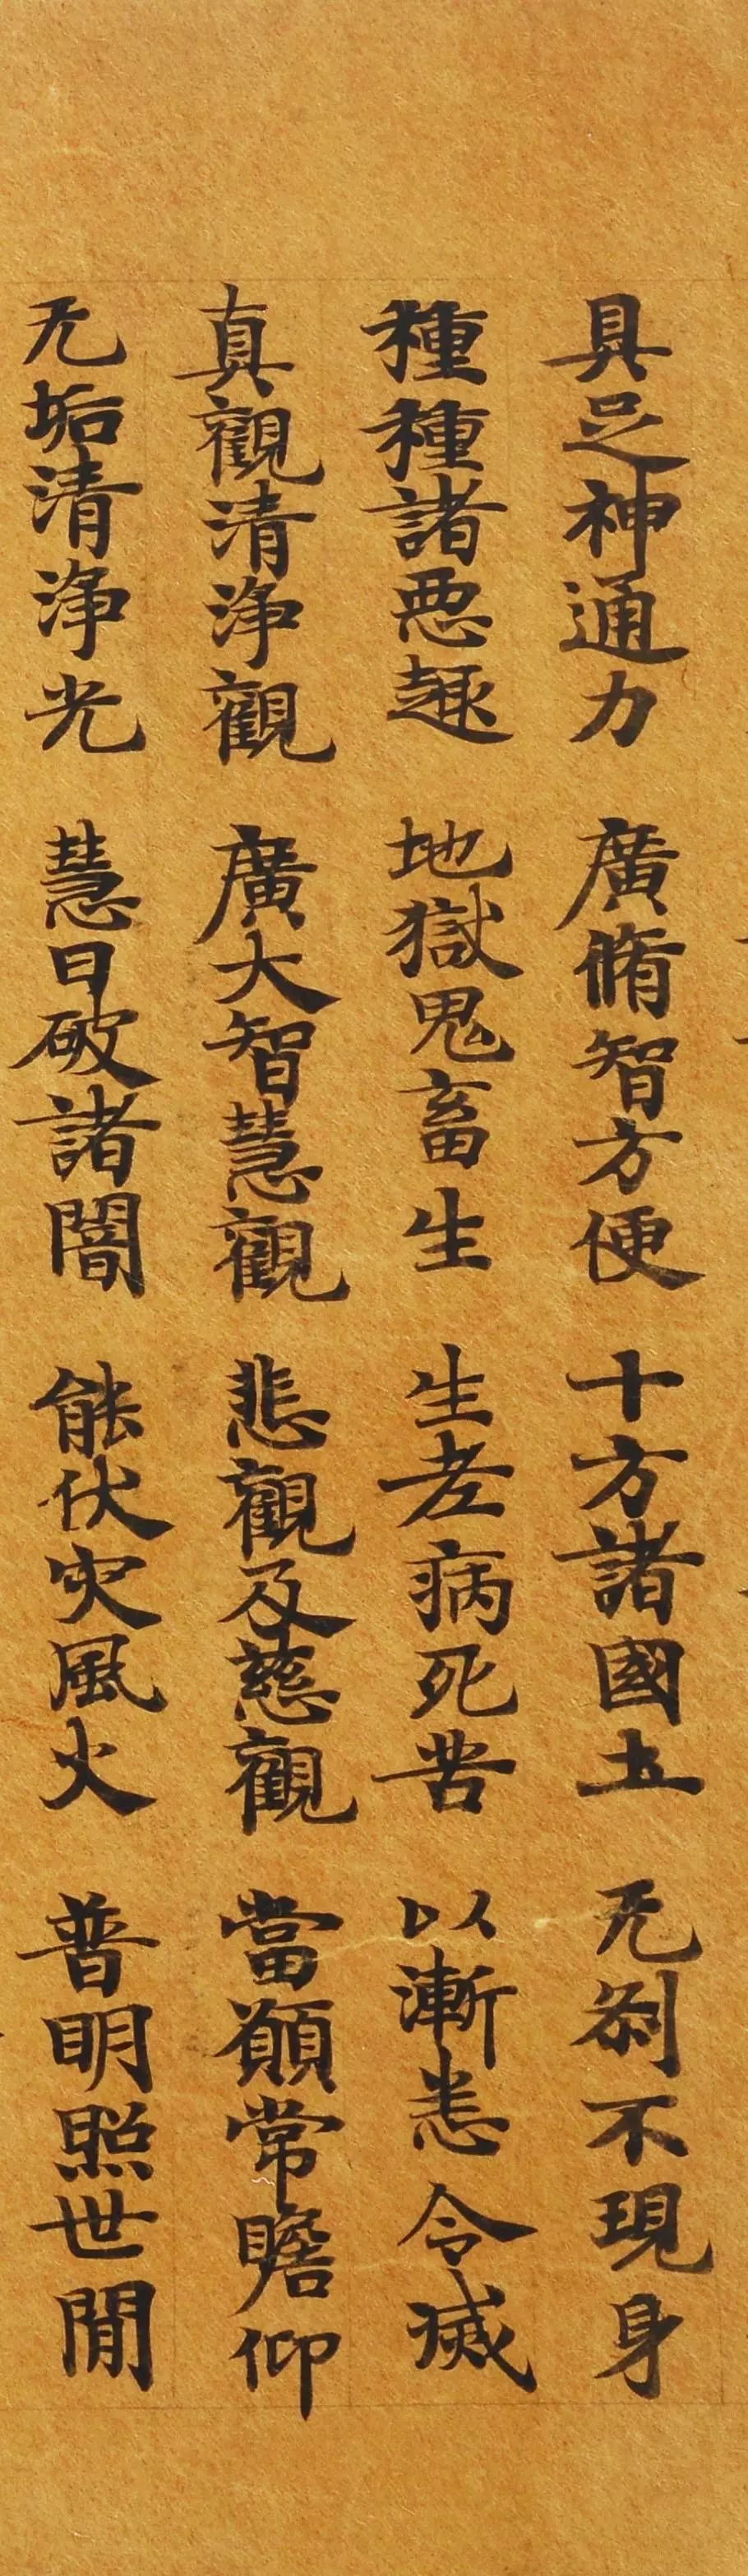 具足神通力 廣脩智方便 十方諸國土 无刹不現身
種種諸惡趣 地獄鬼畜生 生老病死苦 以漸悉令滅
真觀清淨觀 廣大智慧觀 悲觀及慈觀 當願常瞻仰
无垢清淨光 慧日破諸闇 能伏灾風火 普明照世閒